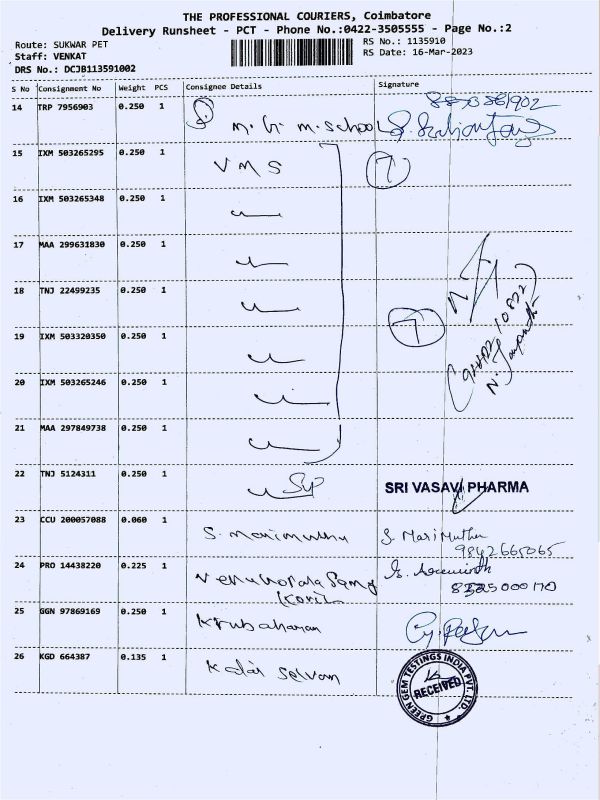 THE PROFESSIONAL COURIERS, Coimbatore
Delivery Runsheet - PCT - Phone No.:0422-3505555 - Page No.:2
Route: SUKWAR PET
Staff: VENKAT
DRS No.: DCJB113591002
RS No.: 1135910
RS Date: 16-Mar-2023
S No Consignment No Weight PCS Consignee Details Signature
14 TRP 7956903 0.250 1 M.G.M.School
15 IXM 503265295 0.250 1 VMS 7
16 IXM 503265348 0.250 1
17 MAA 299631830 0.250 1
18 TNJ 22499235 0.250 1 7
19 IXM 503320350 0.250 1
20 IXM 503265246 0.250 1
21 MAA 297849738 0.250 1
22 TNJ 5124311 0.250 1 SVP SRI VASAVI PHARMA
23 CCU 200057088 0.060 1 S. Marimuthu S. MariMuthu
9842665065
24 PRO 14438220 0.225 1
25 GGN 97869169 0.250 1 Krubaharan
26 KGD 664387 0.135 1 Kalai Selvan
GREEN GEM TESTINGS INDIA PVT. LTD.
RECEIVED